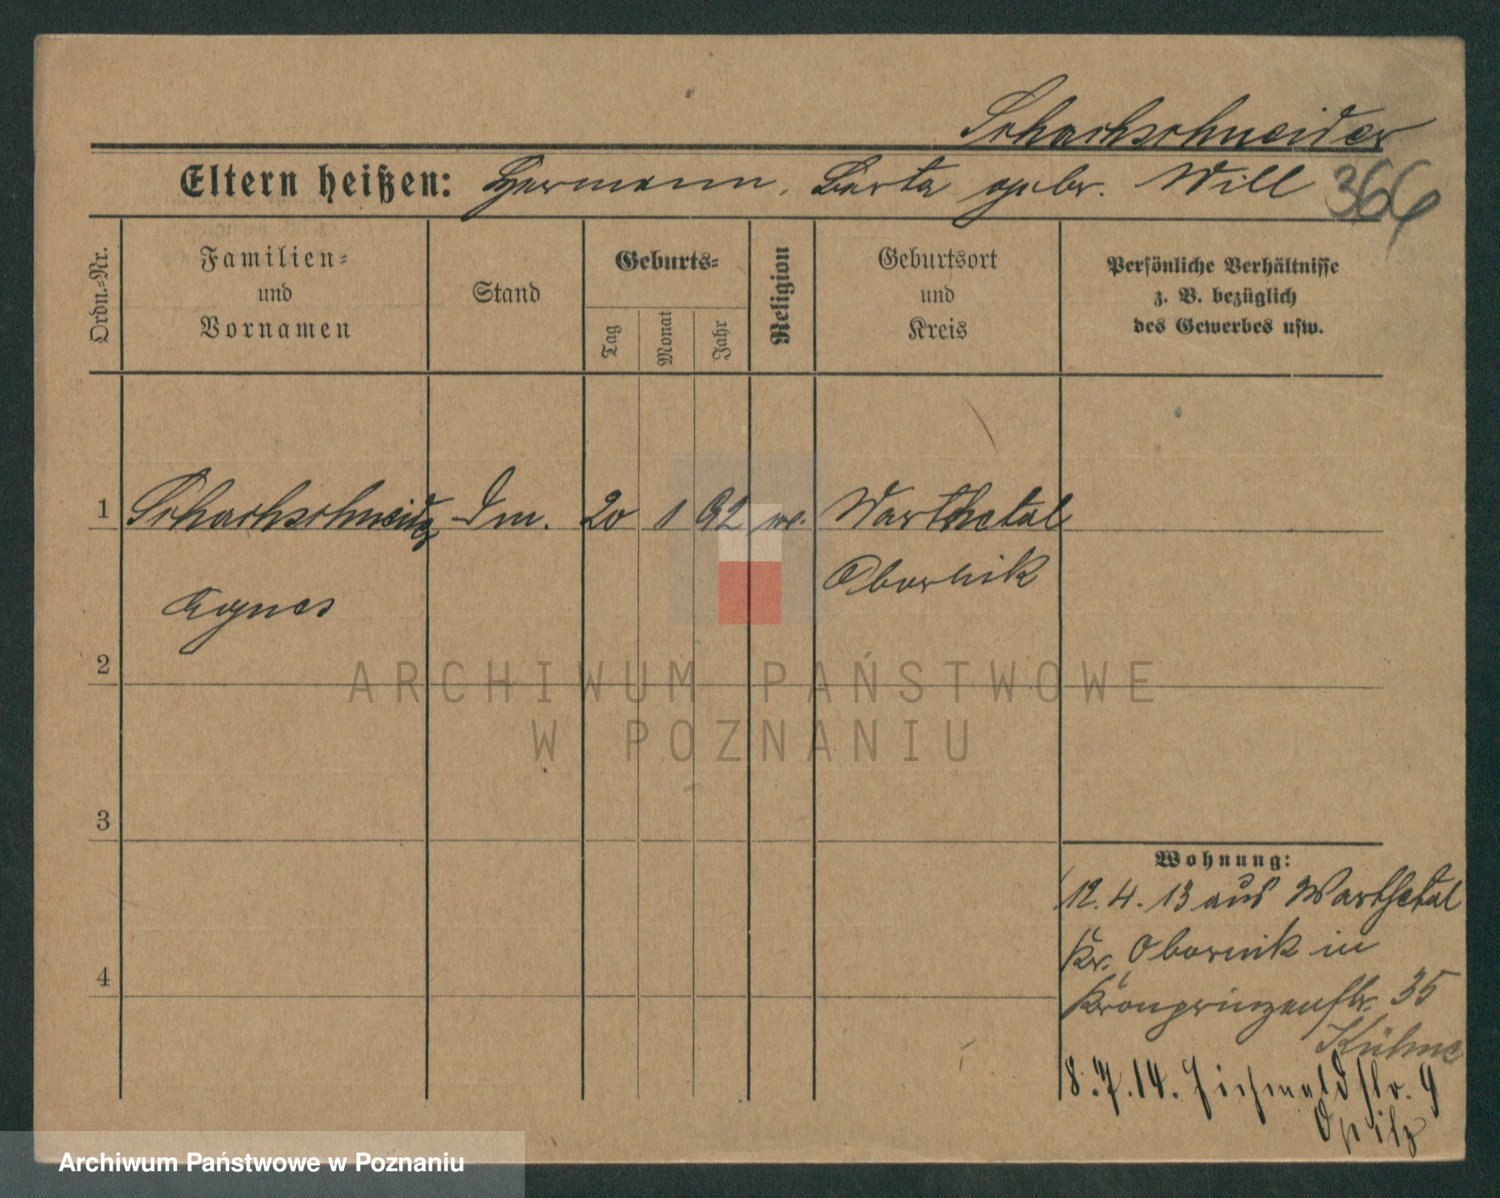 Schachschneider
Eltern heißen: Hermann, Berta geb. Will 366
Ordn.-Nr.
Familien-
und
Vornamen
Stand
Geburts-
Tag
Monat
Jahr
Religion
Geburtsort
und
Kreis
Persönliche Verhältnisse
z. B. bezüglich
des Gewerbes usw.
1 Schachschneider 20 1 92 Warthetal
Obornik
Agnes
2
ARCHIWUM PAŃSTWOWE
W POZNANIU
3
Wohnung:
12.4.13 aus Warthetal
Kr. Obornik in
4
Kronprinzenstr. 35
Kühne
8.7.14. Eichwaldstr. 9
Opitz
Archiwum Państwowe w Poznaniu